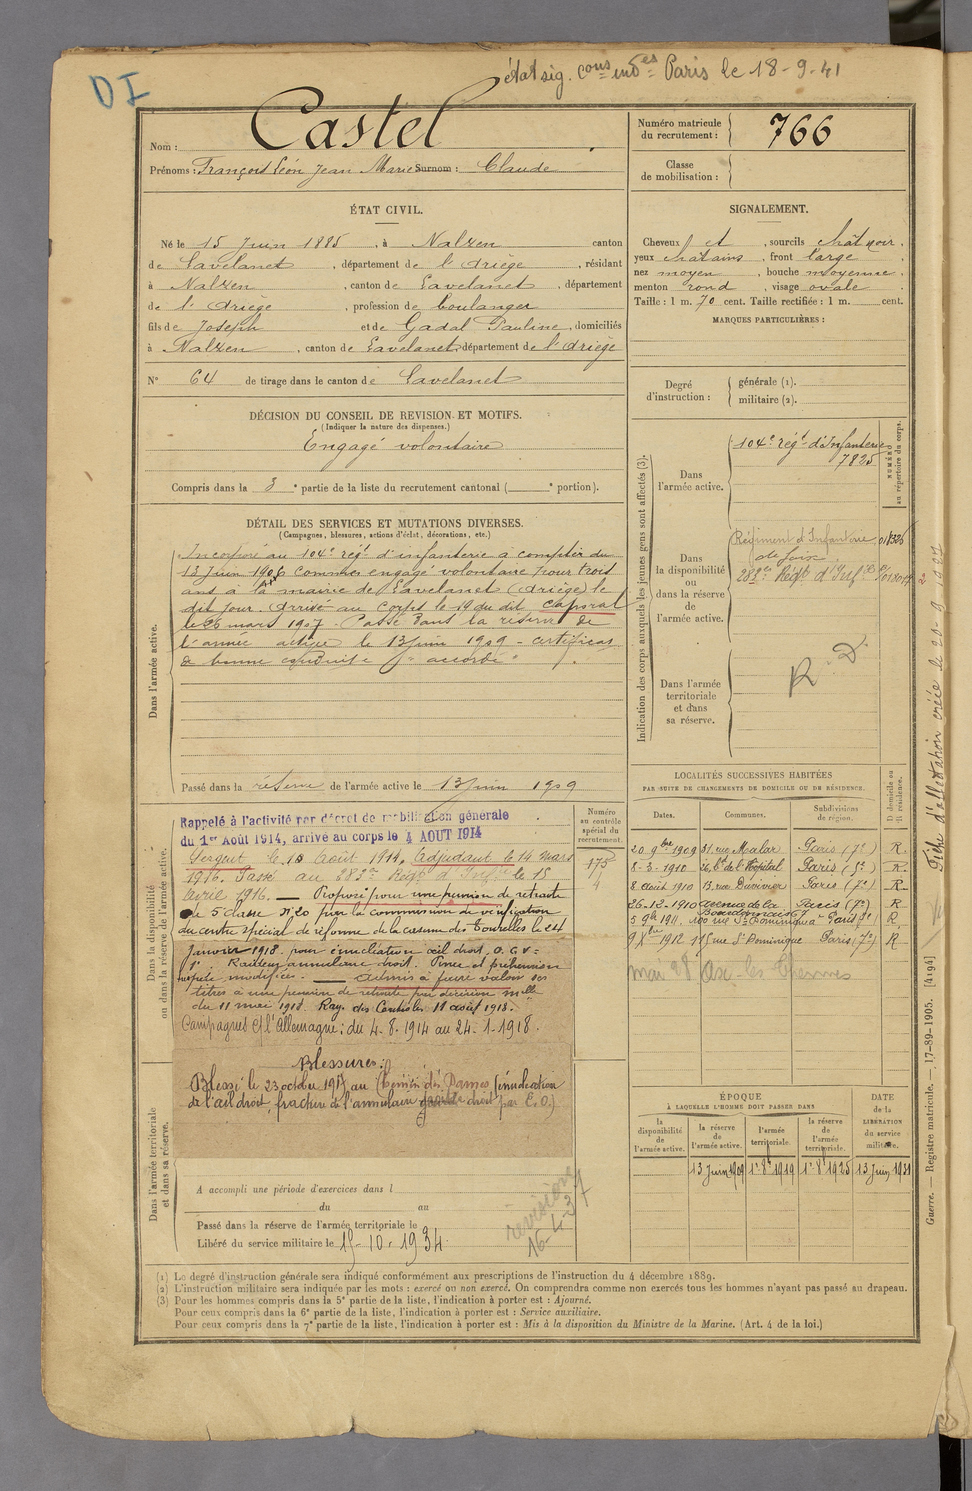 DI
état sig. Paris le 18-9-41
Nom : Castel
Prénoms : François Léon Jean Marie Surnom : Claude
Numéro matricule du recrutement : 766
Classe de mobilisation :
ÉTAT CIVIL.
Né le 15 Juin 1885, à Nalzen canton
de Lavelanet, département de l'Ariège, résidant
à Nalzen, canton de Lavelanet, département
de l'Ariège, profession de boulanger
fils de Joseph et de Gadal Pauline, domiciliés
à Nalzen, canton de Lavelanet, département de l'Ariège
N° 64 de tirage dans le canton de Lavelanet
SIGNALEMENT.
Cheveux et, sourcils chât noir,
yeux châtains, front large,
nez moyen, bouche moyenne,
menton rond, visage ovale.
Taille : 1 m. 70 cent. Taille rectifiée : 1 m. cent.
MARQUES PARTICULIÈRES :
Degré d'instruction : générale (1).
militaire (2).
DÉCISION DU CONSEIL DE REVISION ET MOTIFS.
(Indiquer la nature des dispenses.)
Engagé volontaire
Compris dans la 3e partie de la liste du recrutement cantonal ( e portion).
DÉTAIL DES SERVICES ET MUTATIONS DIVERSES.
(Campagnes, blessures, actions d'éclat, décorations, etc.)
Dans l'armée active.
Incorporé au 104e régt d'infanterie à compter du
13 Juin 1906 comme engagé volontaire pour trois
ans à la mairie de Lavelanet (Ariège) le
dit jour. Arrivé au corps le 19 du dit. Caporal
le 26 mars 1907. Passé dans la réserve de
l'armée active le 13 juin 1909 - certificat
de bonne conduite "accordé".
Passé dans la réserve de l'armée active le 13 juin 1909
Indication des corps auxquels les jeunes gens sont affectés (3).
NUMÉRO au répertoire du corps.
Dans l'armée active.
104e régt d'Infanterie
7825
Dans la disponibilité ou dans la réserve de l'armée active.
Régiment d'Infanterie
de foix
283e Régt d'Inf
Dans l'armée territoriale et dans sa réserve.
R. D.
LOCALITÉS SUCCESSIVES HABITÉES
PAR SUITE DE CHANGEMENTS DE DOMICILE OU DE RÉSIDENCE.
Dates. Communes. Subdivisions de région. D domicile ou R résidence.
20 9bre 1909 31 rue Malar Paris (7e) R.
8-3-1910 26, Bd de l'Hôpital Paris (5e) R.
8 août 1910 13, rue Duvivier Paris (7e) R.
26-12-1910 avenue de la Bourdonnais 67 Paris (7e) R.
5 9bre 1911 100 rue St Dominique Paris 7e R.
9 Xbre 1912 115 rue St Dominique Paris (7e) R
mai 28 Ax-les-Thermes
Dans la disponibilité ou dans la réserve de l'armée active.
Rappelé à l'activité par décret de mobilisation générale
du 1er Août 1914, arrivé au corps le 4 AOUT 1914
Sergent le 10 Août 1914. Adjudant le 14 mars
1916. Passé au 283e Régt d'Inf le 18
Avril 1916. — Proposé pour une pension de retraite
de 5 classe N°20 par la commission de vérification
du centre spécial de réforme de la caserne des Tourelles le 24
Janvier 1918. pour énucléation œil droit, O.G.V=
1°. Raideur annulaire droit. Pince et préhension
modifiée. — admis à faire valoir ses
titres à une pension de retraite par décision mlle
du 11 mai 1918. Ray. des Contrôles 11 août 1918.
Campagnes c/ l'Allemagne : du 4-8-1914 au 24-1-1918.
Blessures :
Blessé le 23 octobre 1917 au Chemin des Dames (énucléation
de l'œil droit, fracture de l'annulaire droit par E.O.)
Numéro au contrôle spécial du recrutement.
173
4
Dans l'armée territoriale et dans sa réserve.
A accompli une période d'exercices dans l
du au
Passé dans la réserve de l'armée territoriale le
Libéré du service militaire le 15-10-1934.
revision
16-4-37
ÉPOQUE
À LAQUELLE L'HOMME DOIT PASSER DANS
DATE de la LIBÉRATION du service militaire.
la disponibilité de l'armée active. la réserve de l'armée active. l'armée territoriale. la réserve de l'armée territoriale.
13 Juin 1909 1er 8e 1919 1er 8e 1925 13 Juin 1931
(1) Le degré d'instruction générale sera indiqué conformément aux prescriptions de l'instruction du 4 décembre 1889.
(2) L'instruction militaire sera indiquée par les mots : exercé ou non exercé. On comprendra comme non exercés tous les hommes n'ayant pas passé au drapeau.
(3) Pour les hommes compris dans la 5e partie de la liste, l'indication à porter est : Ajourné.
Pour ceux compris dans la 6e partie de la liste, l'indication à porter est : Service auxiliaire.
Pour ceux compris dans la 7e partie de la liste, l'indication à porter est : Mis à la disposition du Ministre de la Marine. (Art. 4 de la loi.)
Guerre. — Registre matricule. — 17-89-1905. [4194]
Fiche d'affectation créée le 20-9-1927